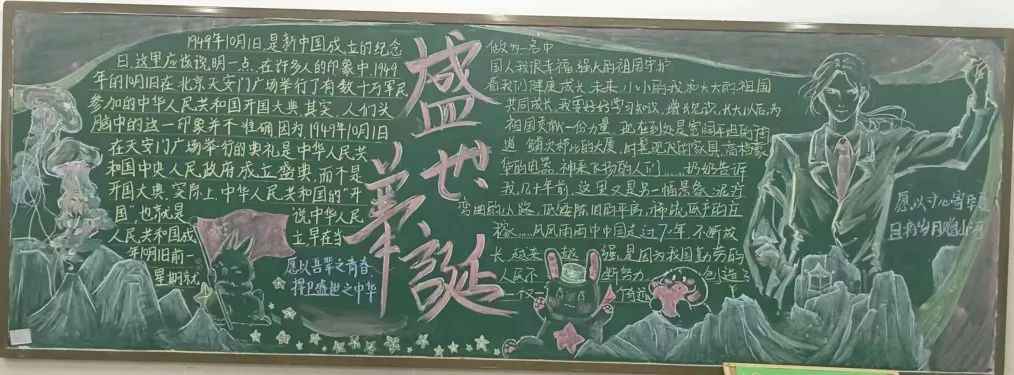 1949年10月1日,是新中国成立的纪念
日.这里应该说明一点.在许多人的印象中.1949
年的10月1日在北京天安门广场举行了有数十万军民
参加的中华人民共和国开国大典.其实,人们头
脑中的这一印象并不准确.因为,1949年10月1日
在天安门广场举行的典礼是中华人民共
和国中央人民政府成立盛典,而不是
开国大典.实际上.中华人民共和国的"开
国",也就是说中华人民
人民共和国成立.早在当
年10月1日前一
星期就
愿以吾辈之青春
捍卫盛世之中华
盛世
華誕
做为一名中
国人我很幸福.强大的祖国守护
着我们健康成长.未来.小小的我和大大的祖国
共同成长.我要好好学习知识,增长见识,长大以后为
祖国贡献一份力量.现在到处是宽阔平坦的街
道.鳞次栉比的大厦.
华的电器.神采飞扬的人们......奶奶告诉
我,几十年前.这里又是另一幅景象.泥泞
弯曲的小路.低矮陈旧的平房,稀疏低产的庄
稼......风风雨雨中中国走过了70年.不断成
长.越来越强.是因为我国勤劳的
人民不断努力.创造了
一个又一
愿以寸心寄华夏
且将岁月赠山河